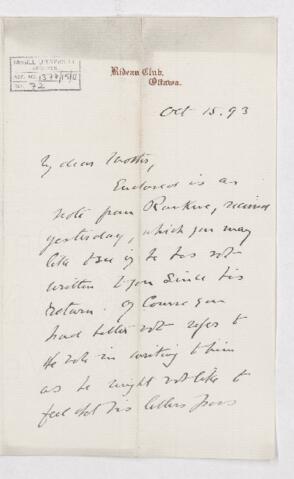 McGILL UNIVERSITY
ARCHIVES
ACC. NO. 1377/15/2
No. 72
Rideau Club,
Ottawa.
Oct 15. 93
My dear
Enclosed is a
note from Rankine, received
yesterday, which you may
like to see if he has not
written to you since his
return. Of course you
had better not refer to
the note in writing to him
as he might not like to
feel that his letters pass